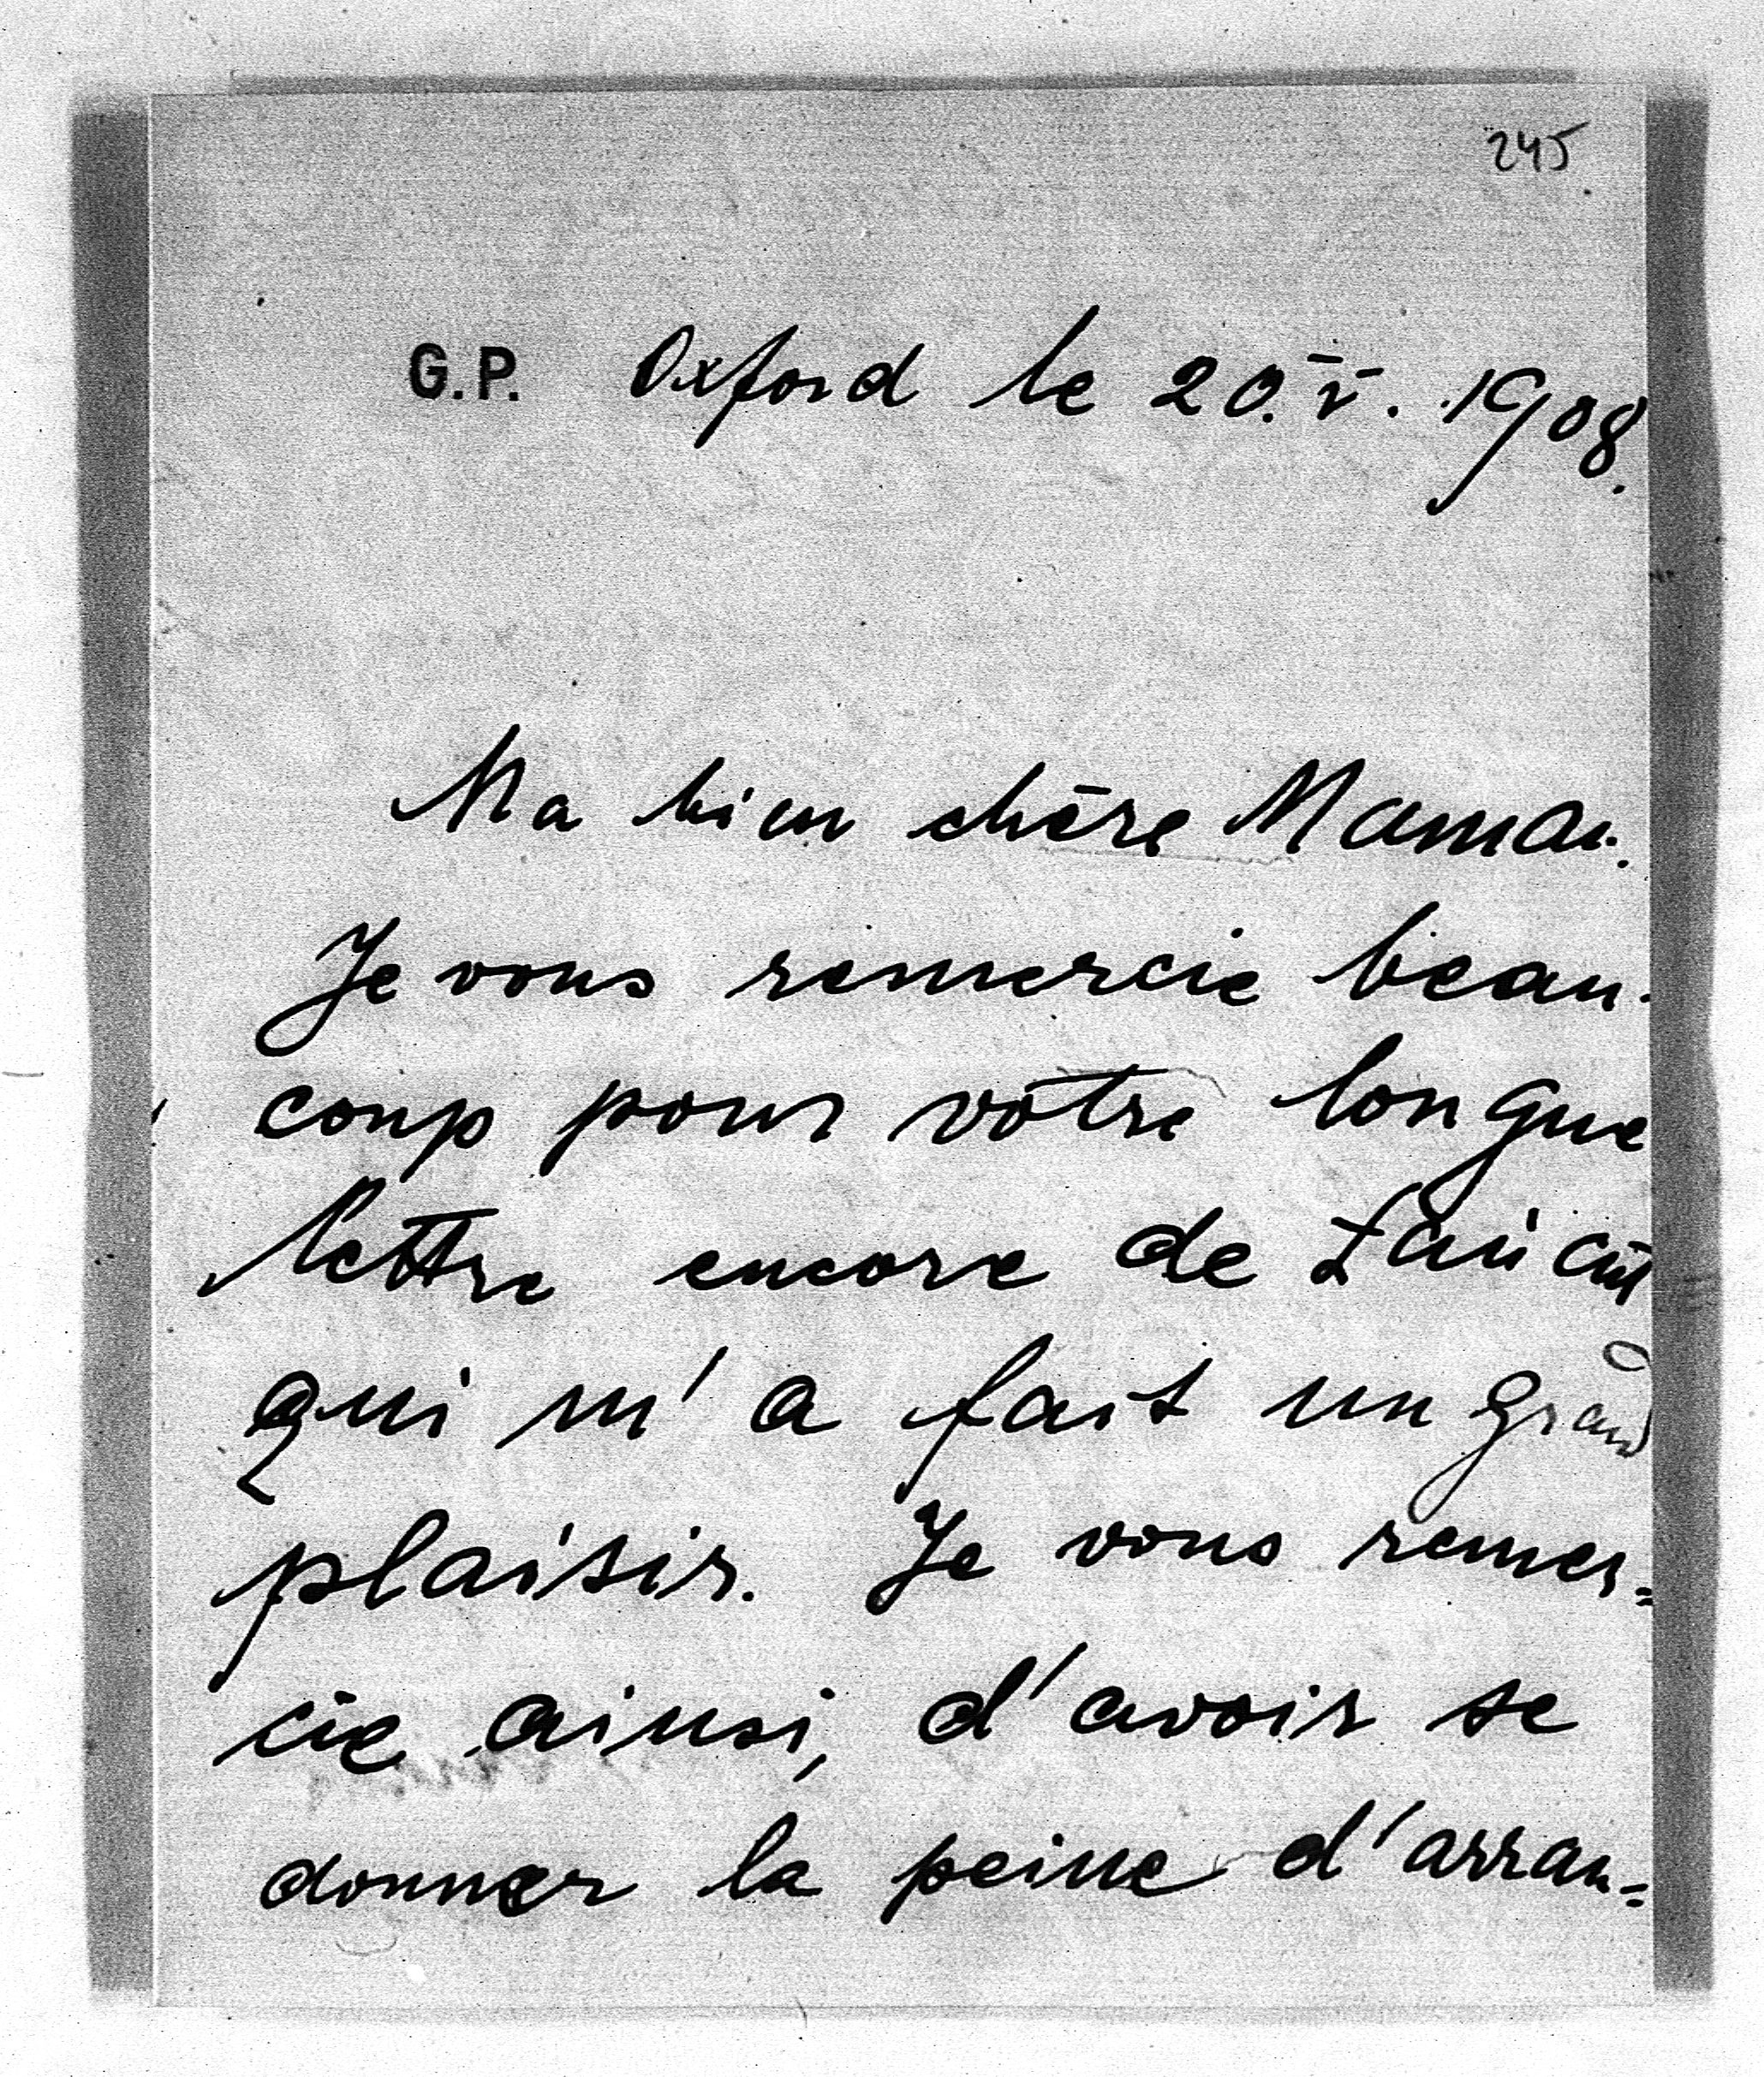 245
G.P. Oxford le 20.V. 1908.
Ma bien chère Maman.
Je vous remercie beau-
coup pour vôtre longue
lettre encore de Łańcut
qui m'a fait un grand
plaisir. Je vous remer=
cie ainsi, d'avoir se
donner la peine d'arran=